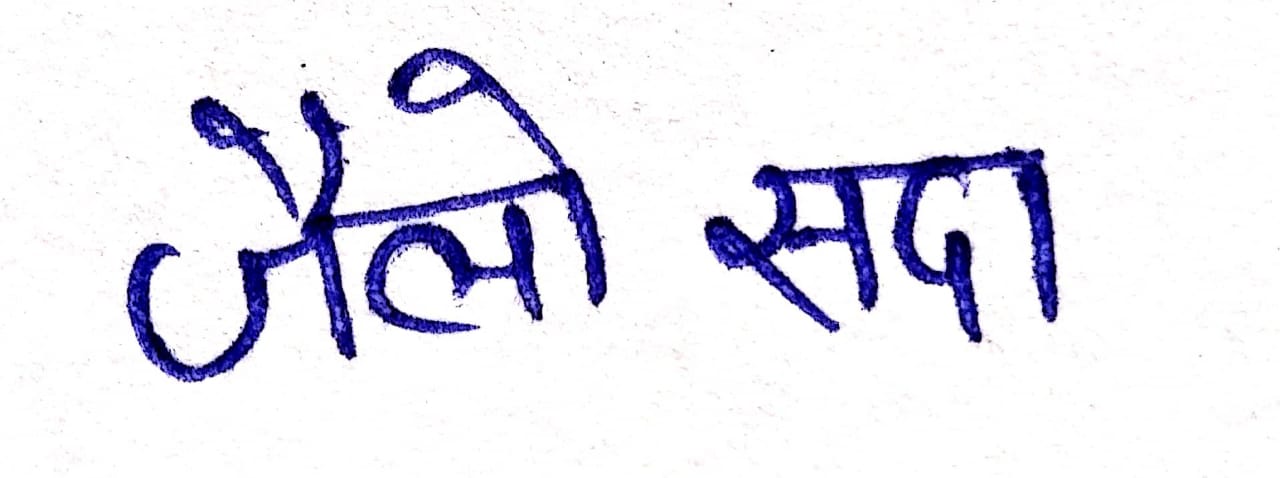 जैलो सदा